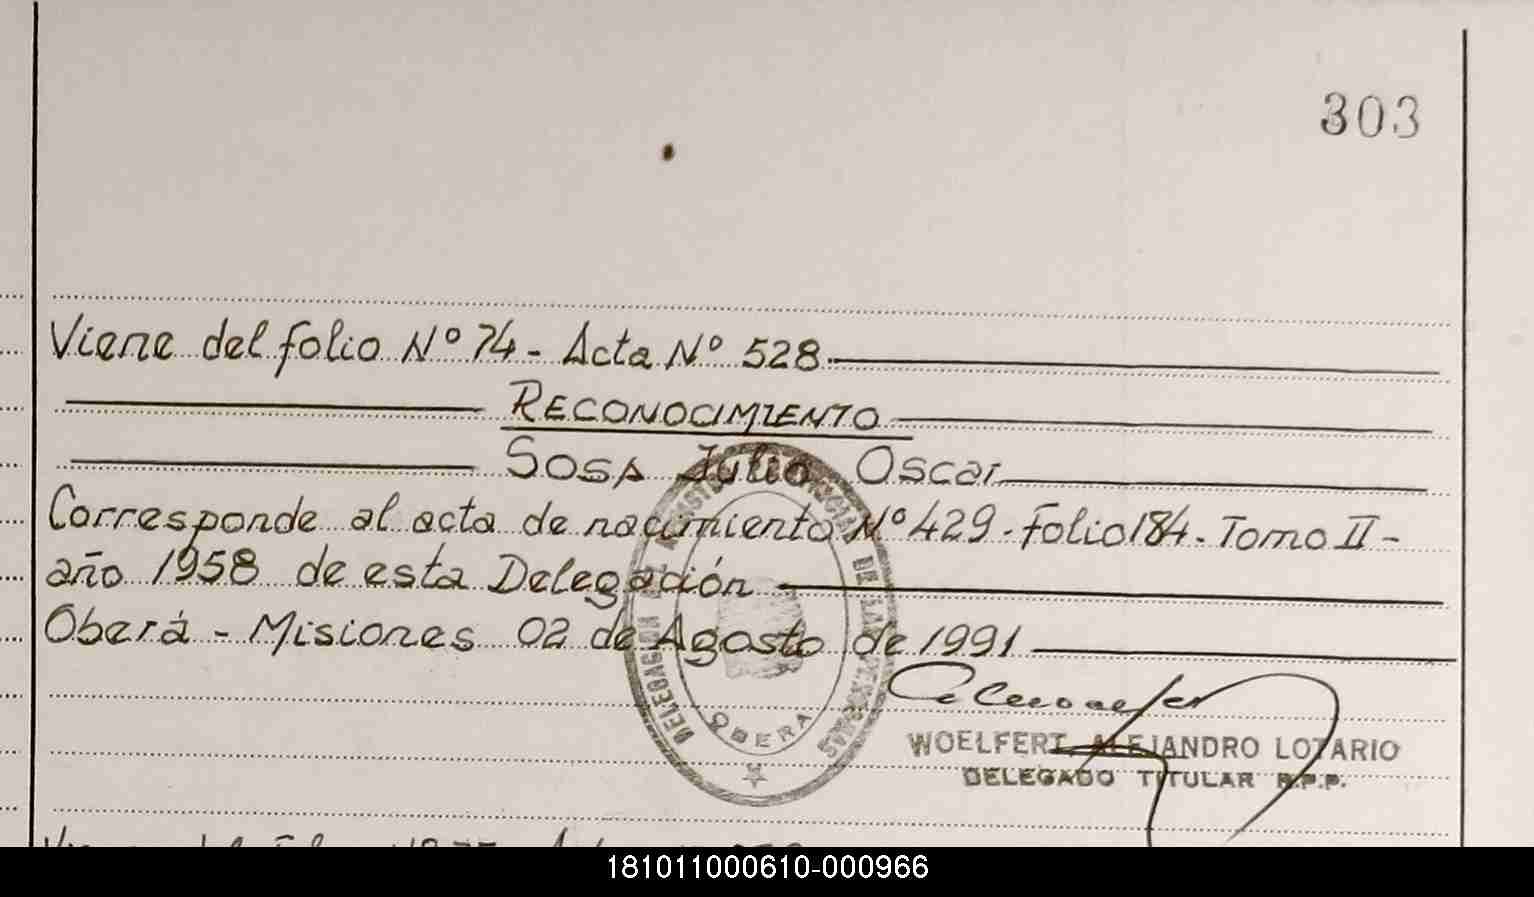 303
Viene del folio Nº 74 - Acta Nº 528.
RECONOCIMIENTO
Sosa Julio Oscar
Corresponde al acta de nacimiento Nº 429 - Folio 184 - Tomo II -
año 1958 de esta Delegación
Oberá - Misiones 02 de Agosto de 1991
DELEGACION DE LAS PERSONAS
OBERA
WOELFERT ALEJANDRO LOTARIO
DELEGADO TITULAR R.P.P.
181011000610-000966